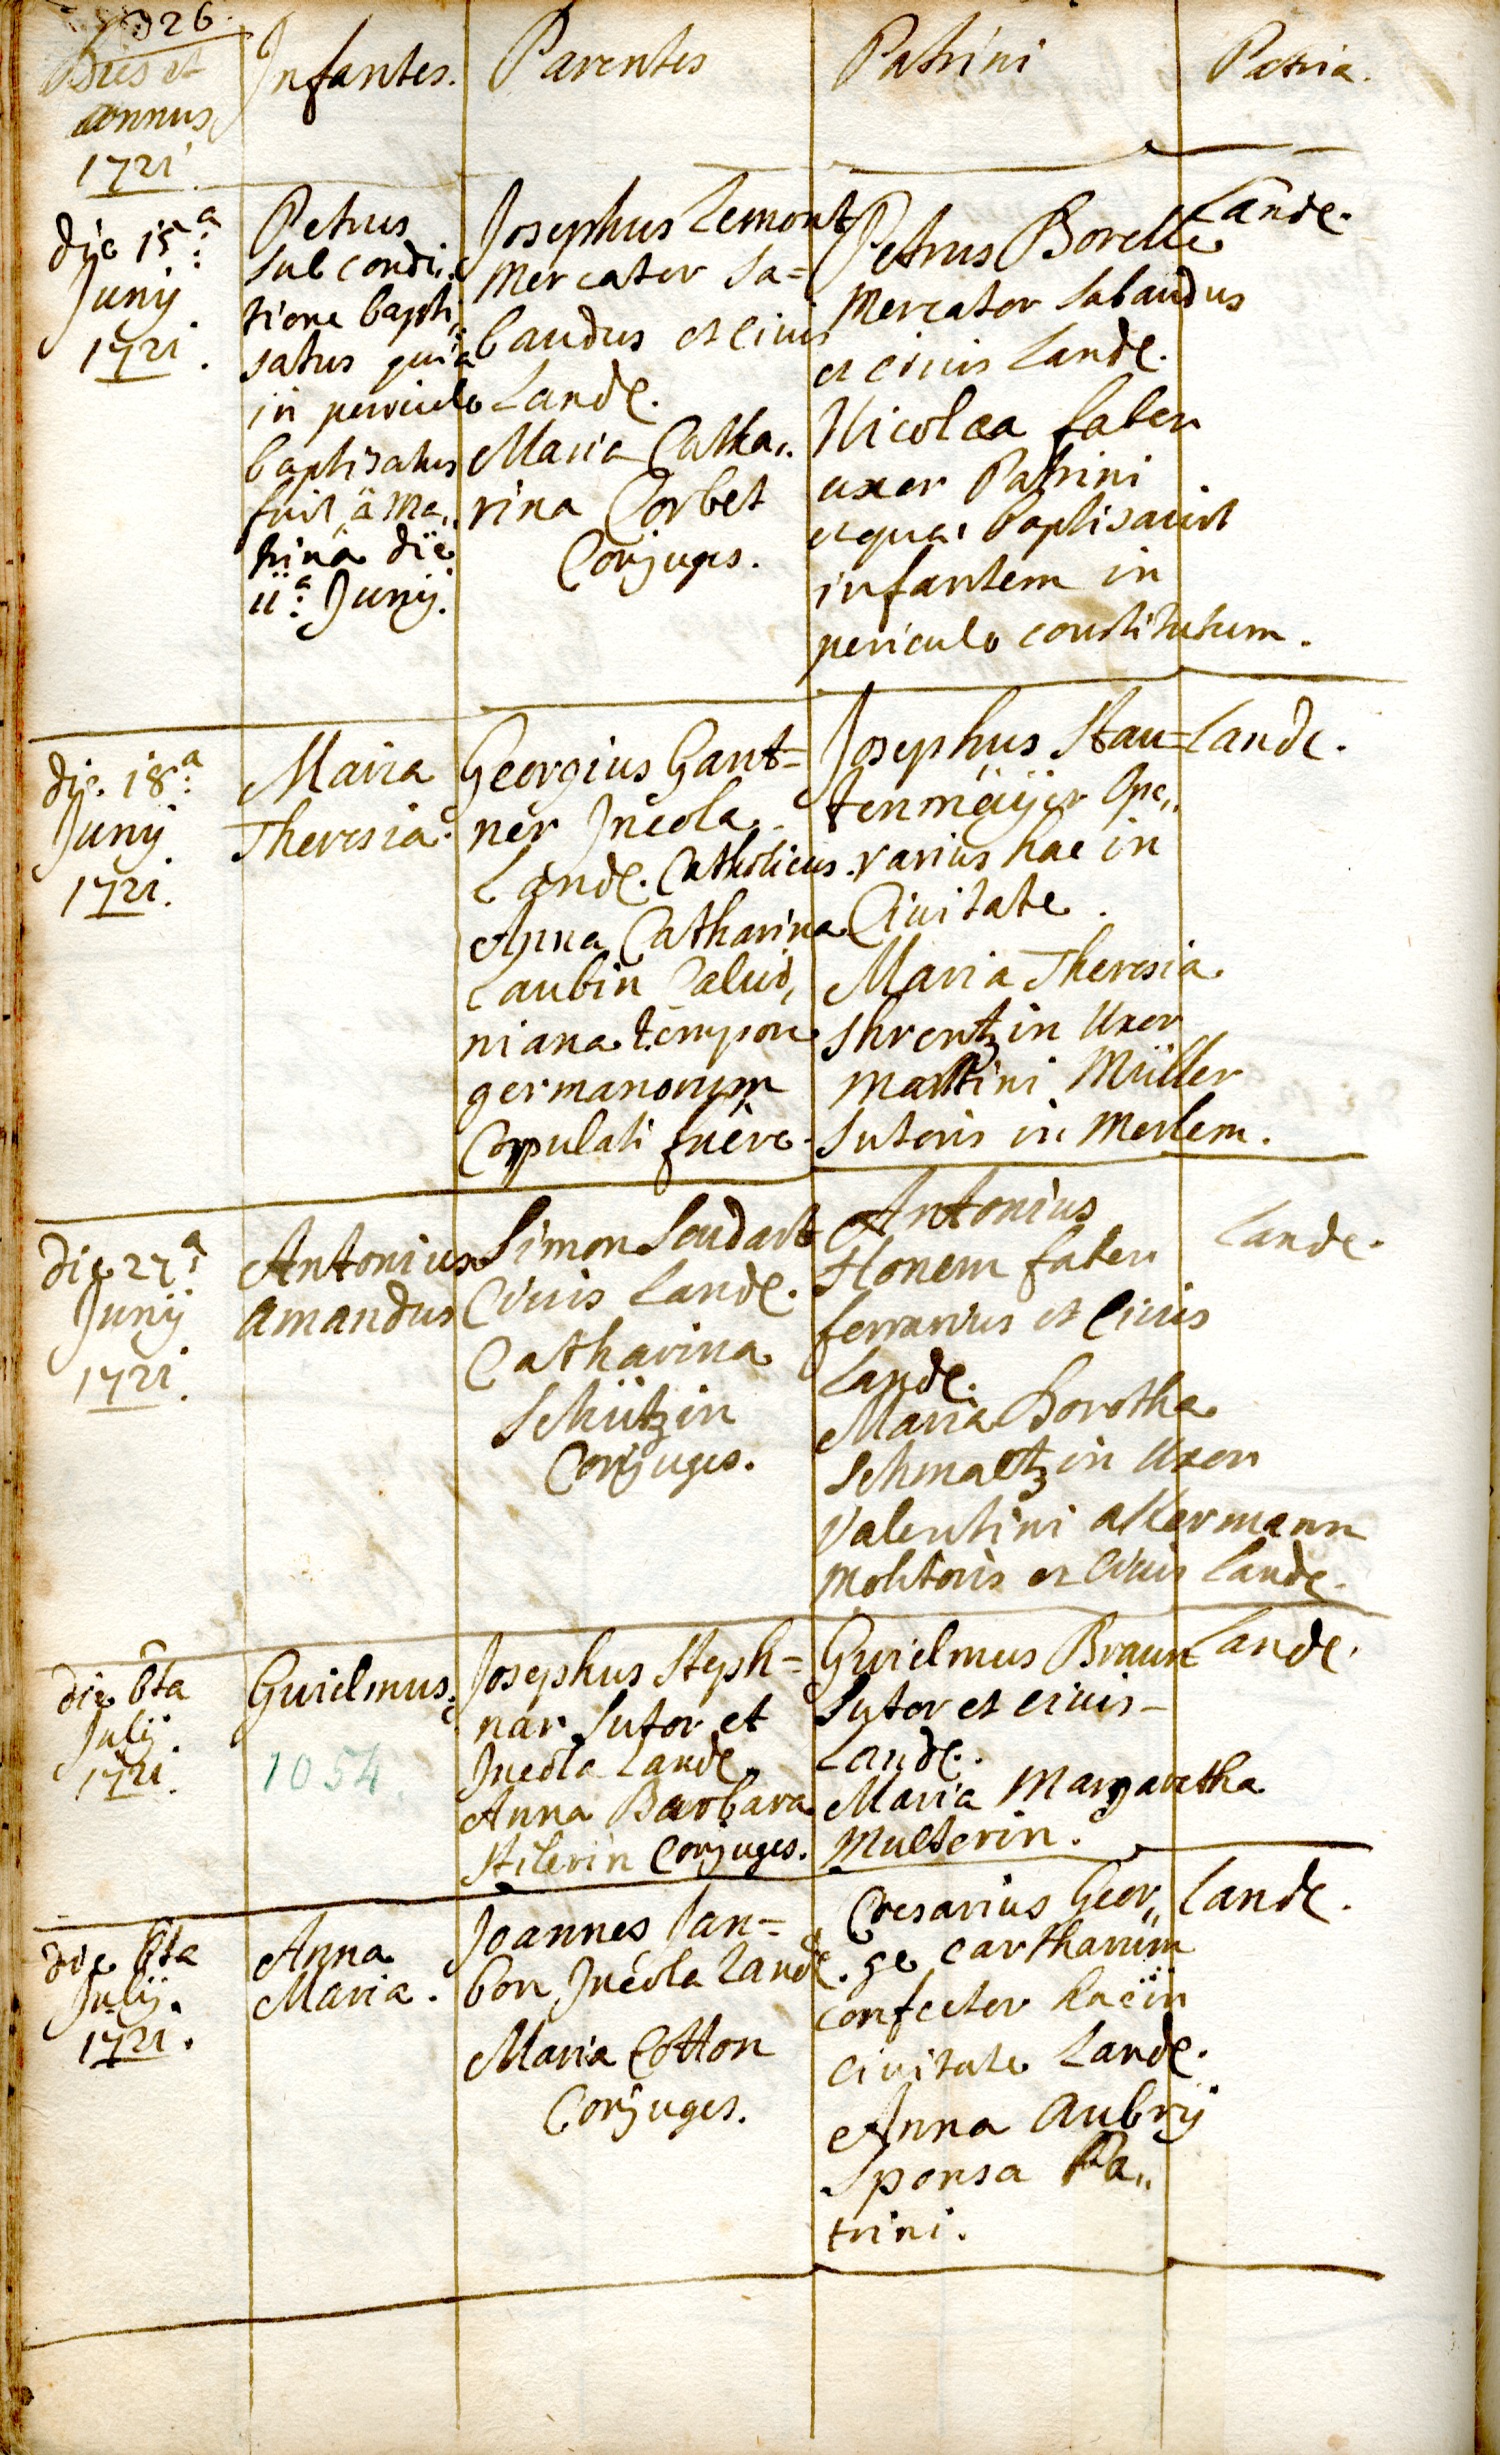 326.
Dies et
annus
1721
Infantes.
Parentes
Patrini
Patria.
die 15a:
Junij
1721.
Petrus
sub condi„
tione bapti„
satus quia
in periculo
baptisatus
fuit à Ma„
trina die
11a: Junij.
Josephus Lemont
Mercator Sa=
baudus et civis
Landæ.
Maria Catha„
rina Corbet
Conjuges.
Petrus Borelle
Mercator Sabaudus
et civis Landæ.
Nicolæa faber
uxor Patrini
et quæ baptisavit
infantem in
periculo constitutum.
Landæ.
die 18a:
Junij
1721.
Maria
Theresia.
Georgius Gant=
ner Incola
Landæ. Catholicus.
Anna Catharina
Laubin Calvi„
niana tempore
germanorum
Copulati fuêre.
Josephus Stau=
tenmeÿer Ope„
rarius hac in
Civitate.
Maria Theresia
Shrentzin Uxor
Martini Müller
Sutoris in Merlem.
Landæ.
die 27a:
Junij
1721.
Antonius
Amandus
Simon Soudart
Civis Landæ.
Catharina
Schützin
Conjuges.
Antonius
Honem faber
ferrarius et Civis
Landæ.
Maria Dorotha
Schmaltzin Uxor
Valentini Akermann
Molitoris et Civis Landæ.
Landæ.
die 6ta
Julij.
1721.
Guielmus.
1054
Josephus Steph=
nar Sutor et
Incola Landæ
Anna Barbara
Stilerin Conjuges.
Guielmus Braun
Sutor et civis
Landæ.
Maria Margaretha
Multerin.
Landæ.
die 6ta
Julij.
1721.
Anna
Maria.
Joannes Jan=
bon Incola Landæ.
Maria Cotton
Conjuges.
Cæsarius Geor„
ge cartharum
confector hac in
civitate Landæ.
Anna Aubrij
Sponsa Pa„
trini.
Landæ.